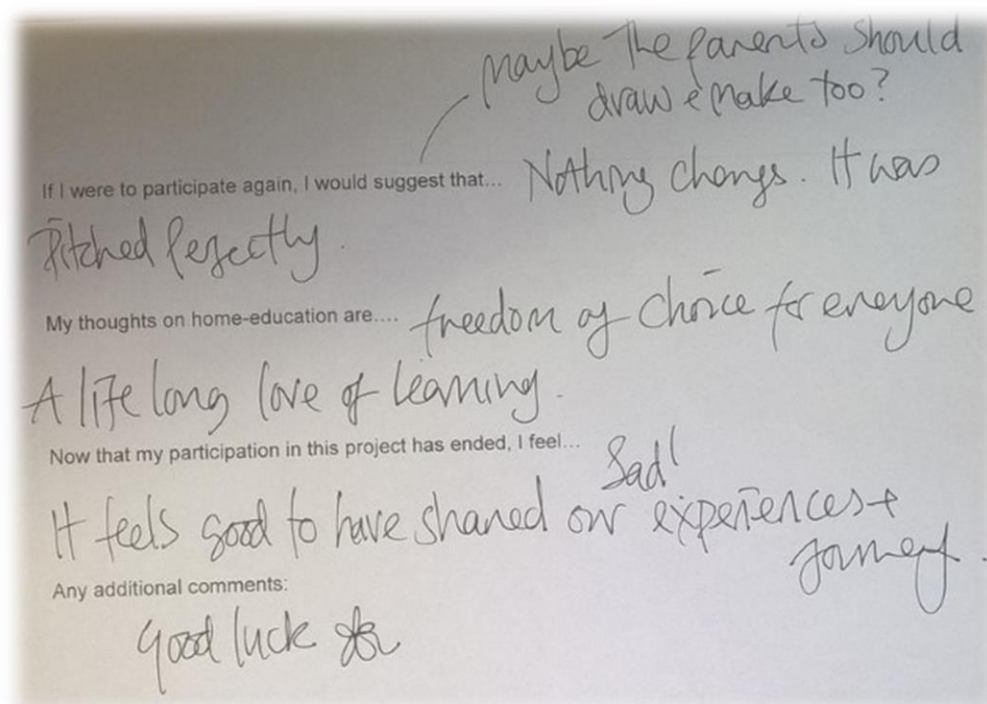 maybe The parents should
draw & make too?
If I were to participate again, I would suggest that... Nothing changs. It was
Pitched Perfectly.
My thoughts on home-education are.... freedom of choice for everyone
A life long love of learning.
Now that my participation in this project has ended, I feel... Sad!
It feels good to have shared our experiences +
journey.
Any additional comments:
Good luck